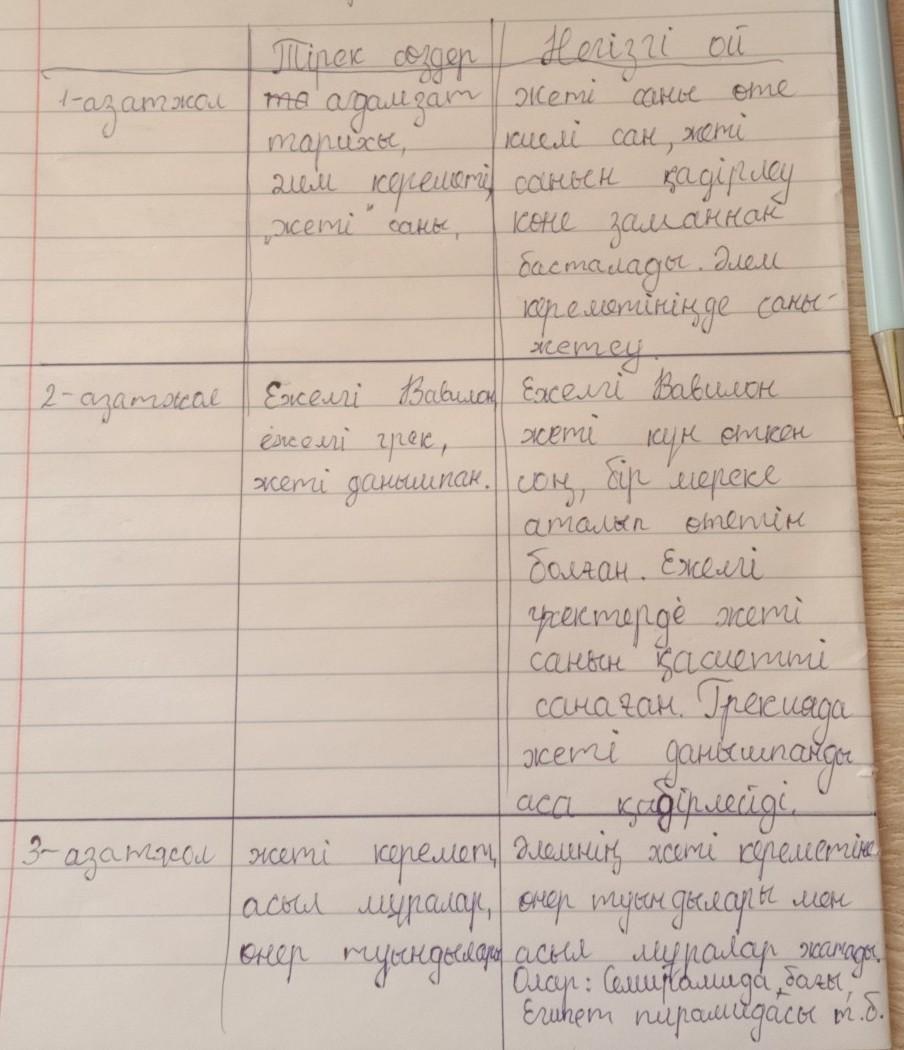 Тірек сөздер
Негізгі ой
1-азатжол
адамзат
тарихы,
әлем кереметі,
„жеті“ саны.
жеті саны өте
киелі сан, жеті
санын қадірлеу
көне заманнан
басталады. Әлем
кереметініңде саны-
жетеу.
2-азатжол
Ежелгі Вавилон,
ежелгі грек,
жеті данышпан.
Ежелгі Вавилон
жеті күн өткен
соң, бір мереке
аталып өтетін
болған. Ежелгі
гректерде жеті
санын қасиетті
санаған. Грекияда
жеті данышпанды
аса қадірлейді.
3-азатжол
жеті керемет,
асыл мұралар,
өнер туындылары
Әлемнің жеті кереметіне
өнер туындылары мен
асыл мұралар жатады.
Олар: Семирамида бағы,
Египет пирамидасы т.б.